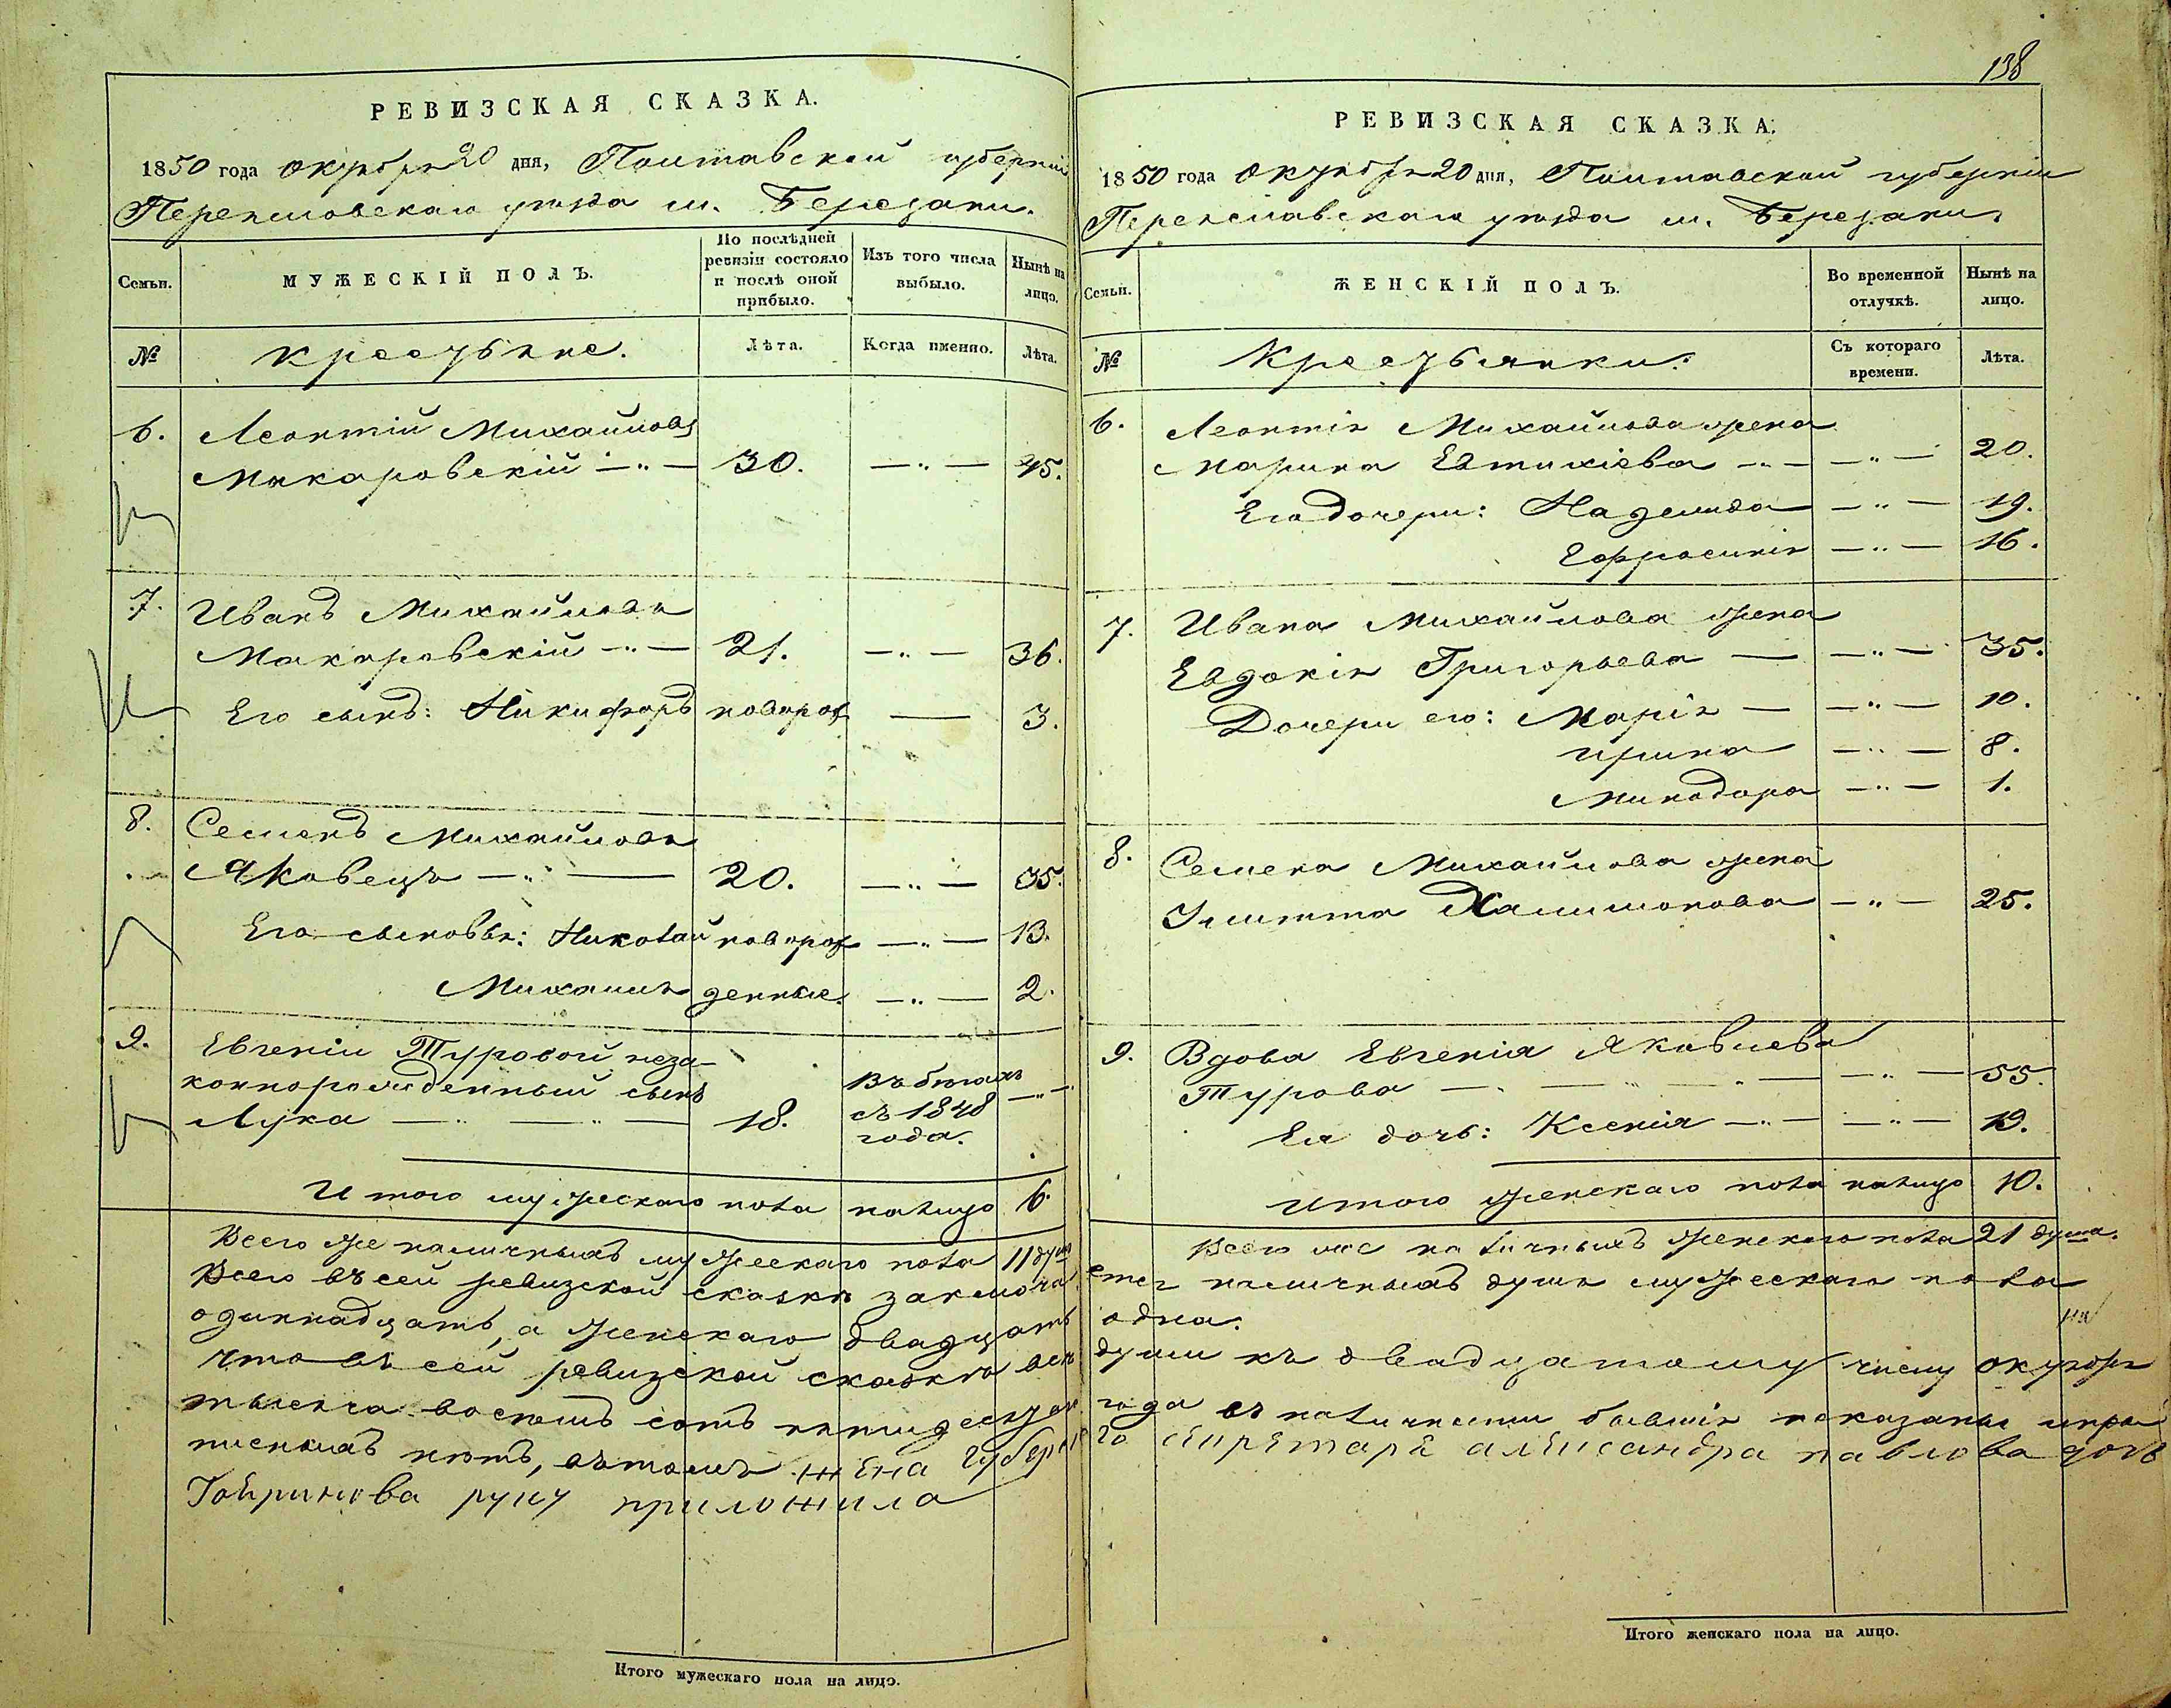 РЕВИЗСКАЯ СКАЗКА.
1850 года октября 20 дня, Полтавской губерніи
Переяславскаго уезда м. Березани.
Семьи.
МУЖЕСКІЙ ПОЛЪ.
По послѣдней ревизіи состояло и послѣ оной прибыло.
Изъ того числа выбыло.
Нынѣ на лицо.
№
крестьяне.
Лѣта.
Когда именно.
Лѣта.
6. Леонтій Михайловъ
Макаровскій —„— 30. —„— 45.
7. Иванъ Михайловъ
Макаровскій —„— 21. —„— 36.
Его сынъ: Никифоръ новорож — 3.
8. Семенъ Михайловъ
Яковецъ —„— 20. —„— 35.
Его сыновья: Николай новорож —„— 13.
Михаилъ денные. —„— 2.
9. Евгеніи Туровой неза-
коннорожденный сынъ
Лука —„—„— 18. Въ бегахъ съ 1848 года. —„—
Итого мужескаго пола налицо 6.
Всего же наличныхъ мужескаго пола 11 душ
Всего въ сей ревизской сказке заключа
одиннадцать, а женскаго двадцать
что въ сей ревизской сказке все
тысяча восемь сотъ пятидесятаго
писныхъ нетъ, въ томъ жена Губернс
руку приложила
Итого мужескаго пола на лицо.
138
РЕВИЗСКАЯ СКАЗКА.
1850 года октября 20 дня, Полтавской губерніи
Переяславскаго уезда м. Березани.
Семьи.
ЖЕНСКІЙ ПОЛЪ.
Во временной отлучкѣ.
Нынѣ на лицо.
№
Крестьянки.
Съ котораго времени.
Лѣта.
6. Леонтія Михайлова жена
Марина Евтихіева —„— —„— 20.
Его дочери: Надежда —„— 19.
Ефросинія —„— 16.
7. Ивана Михайлова жена
Евдокія Григорьева — —„— 35.
Дочери его: Марія — —„— 10.
Ирина —„— 8.
Минодора —„— 1.
8. Семена Михайлова жена
Филимонова —„— 25.
9. Вдова Евгенія Яковлева
Турова —„—„—„— —„— 55.
Ея дочь: Ксенія —„— —„— 19.
Итого женскаго пола налицо 10.
Всего же наличныхъ женскаго пола 21 душа.
ется наличныхъ душъ мужескаго пола
одна.
души къ двадцатому числу октября
года въ наличности бывшія показаны и про
го секретаря александра павлова дочь
Итого женскаго пола на лицо.